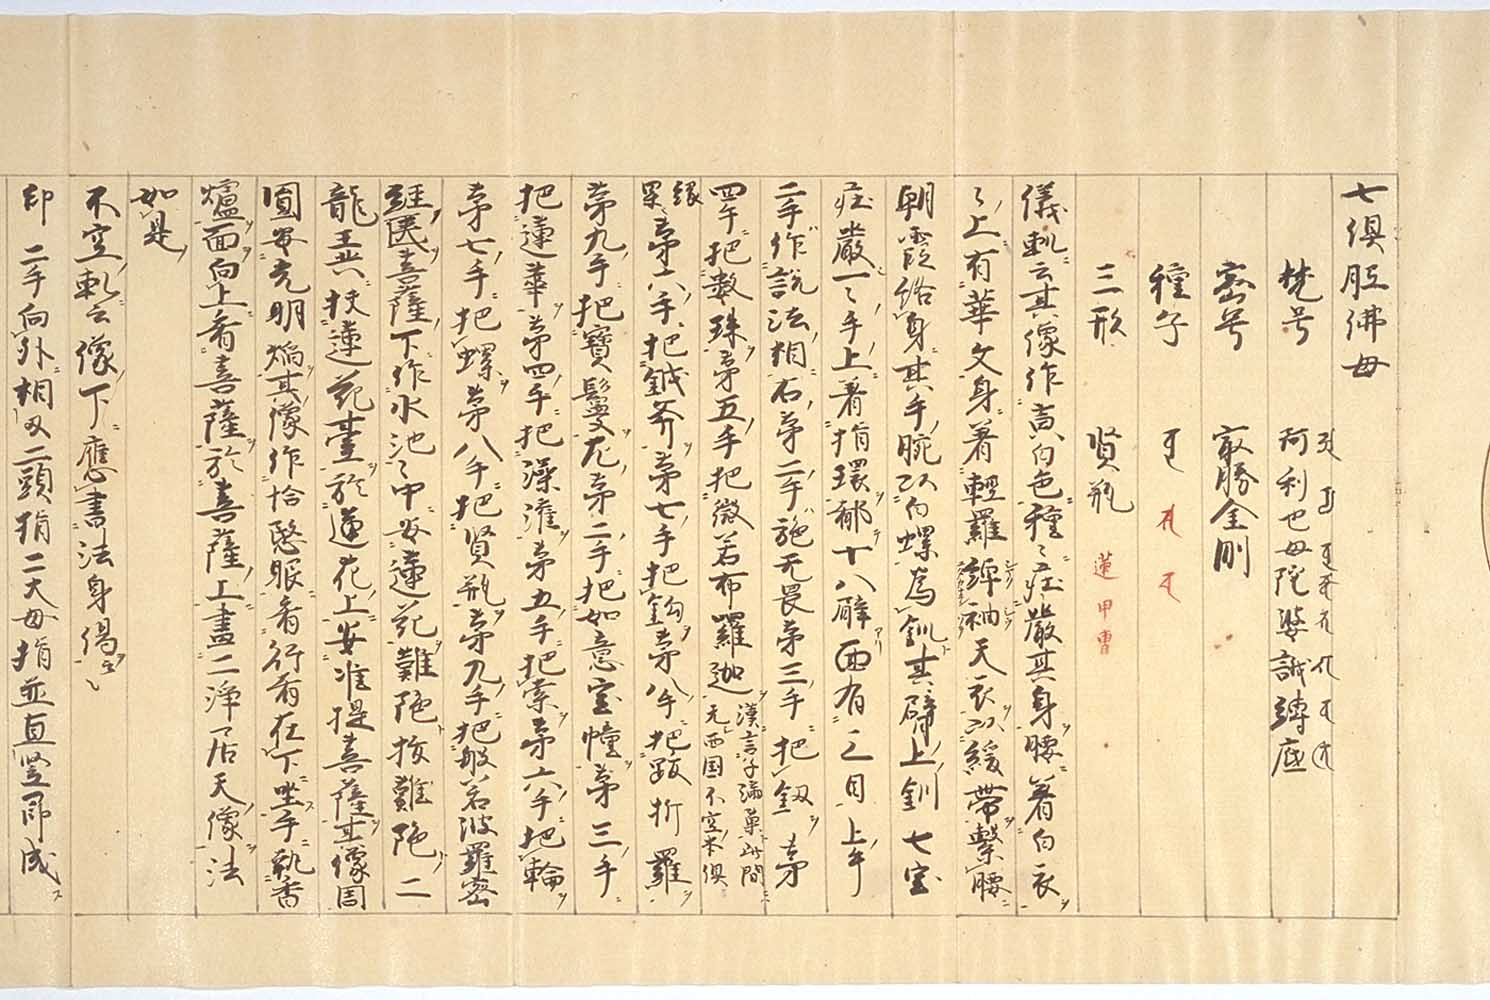 七倶胝佛母
梵号 阿利也母陀婆誐縛底
密号 最勝金剛
種子
三形 賢瓶 蓮 甲冑
儀軌云其像作黄白色種〻庄嚴其身腰著白衣
〻上有華文身著輕羅綽袖天衣以綬帶繫腰
朝霞絡身其手腕以白螺為釧其臂上釧七宝
庄嚴一〻手上著指環都十八臂面有三目上二手
二手作説法相右第二手施无畏第三手把釼第
四手把數珠第五手把微若布羅迦 漢言子満菓此間
无西国不空本倶
縁果 第六手把鉞斧第七手把鉤第八手把跋折羅
第九手把寶鬘左第二手把如意宝幢第三手
把蓮華第四手把澡潅第五手把索第六手把輪
第七手把螺第八手把賢瓶第九手把般若波羅密
經篋菩薩下作水池〻中安蓮花難陀拔難陀二
龍王共扶蓮花臺於蓮花上安准提菩薩其像周
圓安光明焔其像作怡愍眼看行者在下坐手執香
爐面向上看菩薩於菩薩上畫二淨居天像法
如是
不空軌云像下應書法身偈
印 二手向外相叉二頭指二大母指並直竪即成